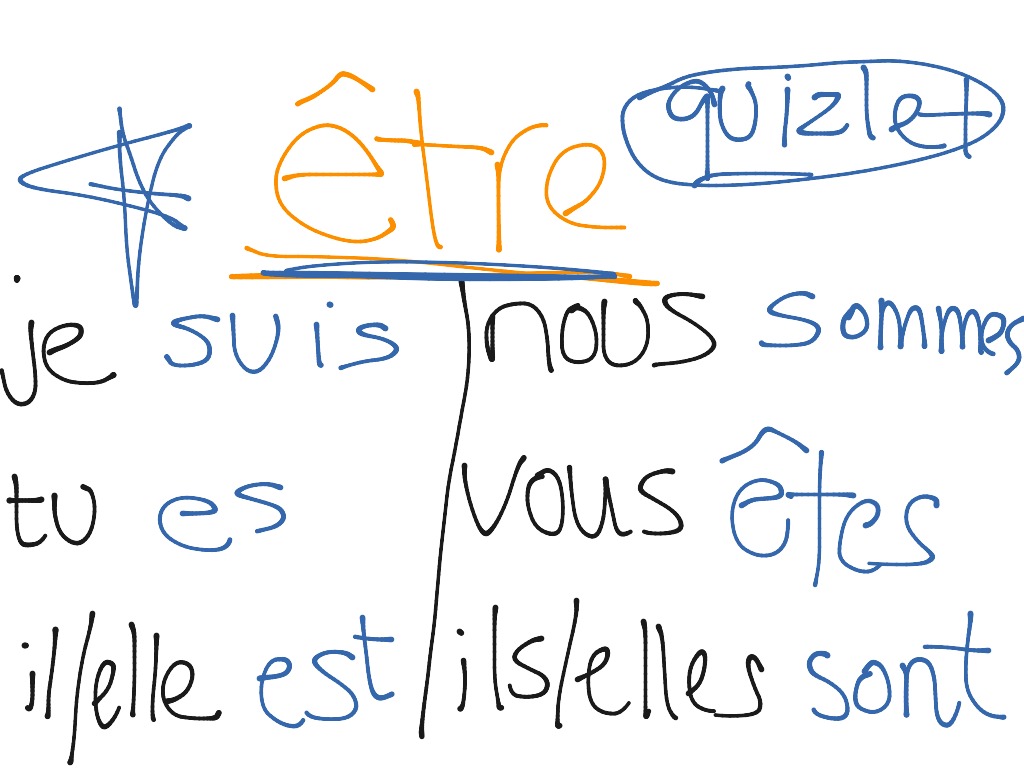 être quizlet
je suis nous sommes
tu es vous êtes
il/elle est ils/elles sont